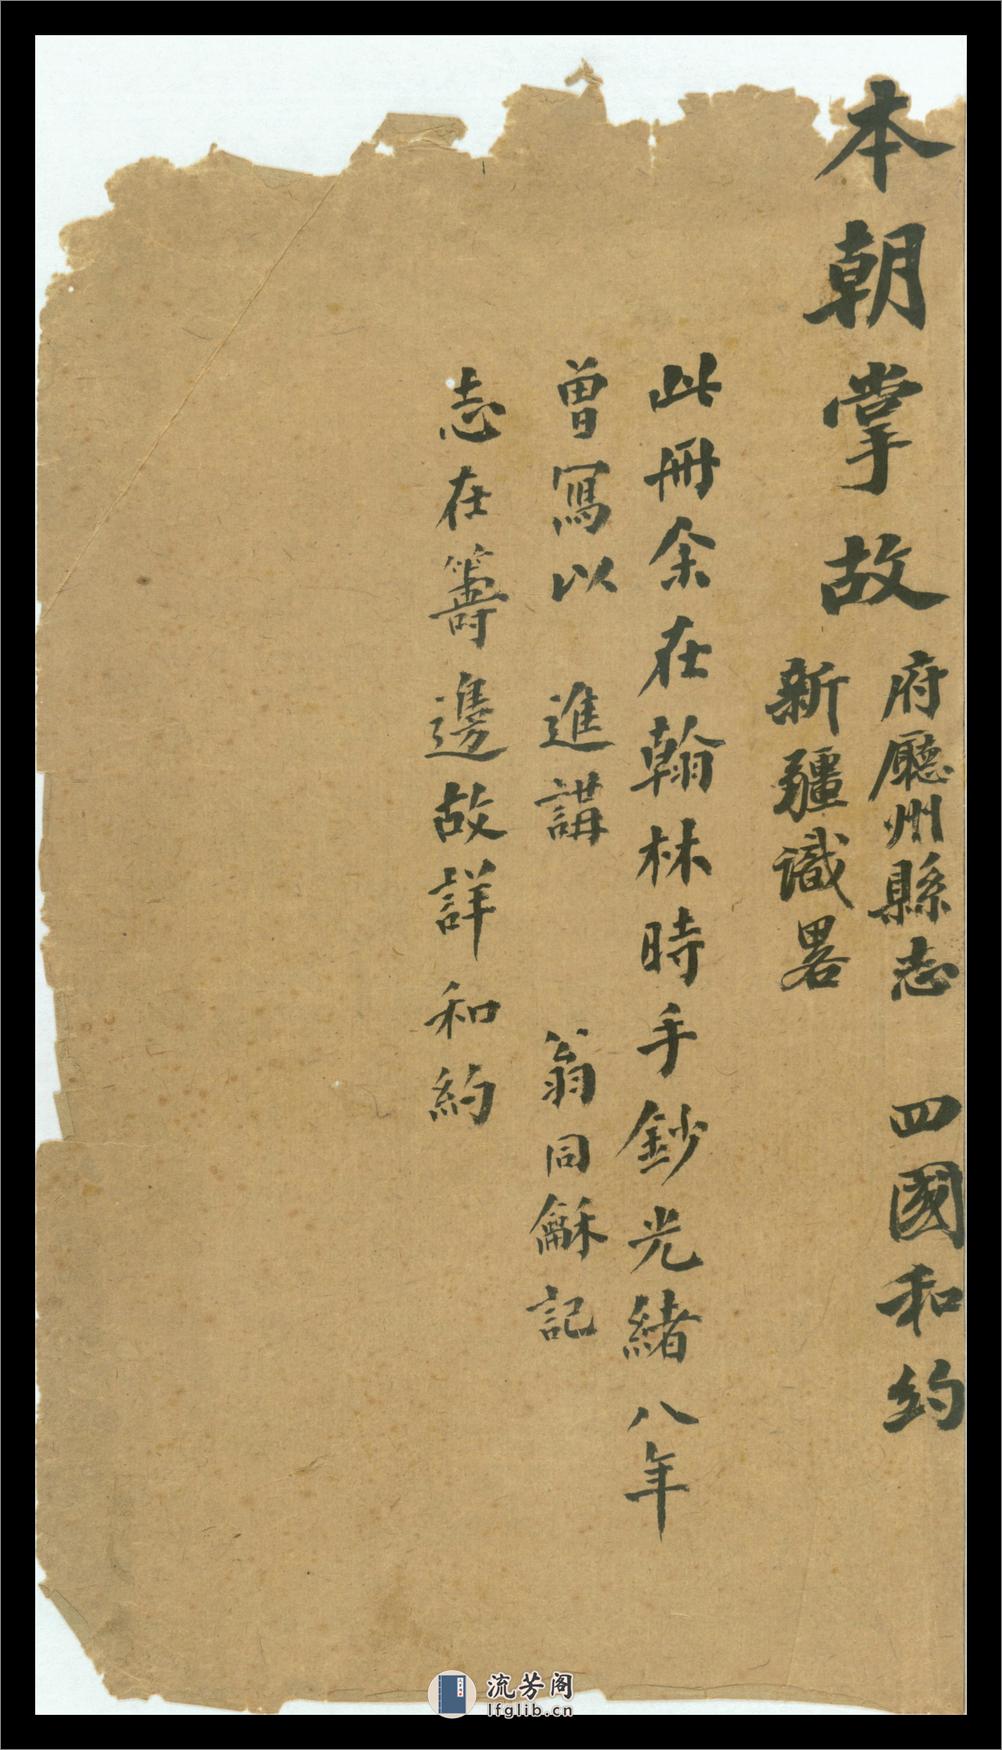 本朝掌故
府廳州縣志 四國和約
新疆識畧
此冊余在翰林時手鈔光緒八年
曾寫以 進講 翁同龢記
志在籌邊故詳和約
流芳阁
lfglib.cn